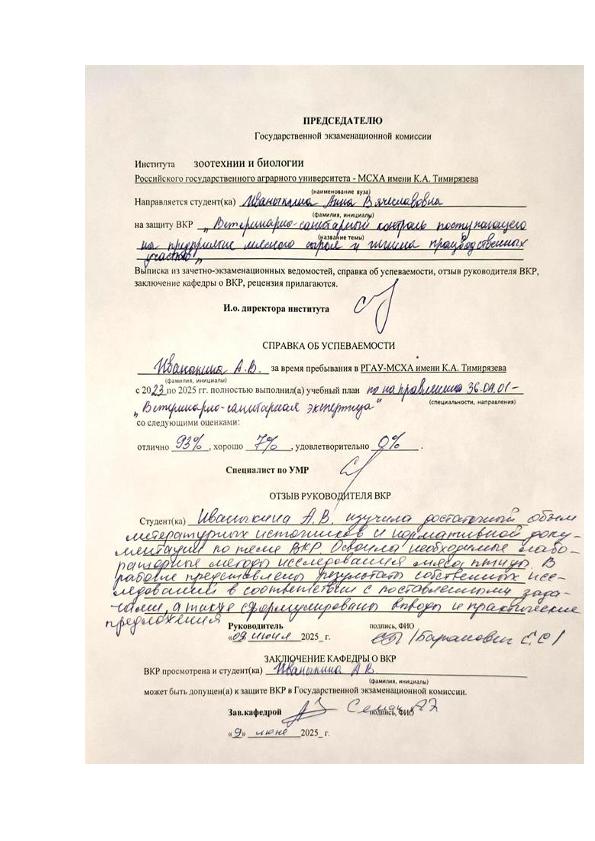 ПРЕДСЕДАТЕЛЮ
Государственной экзаменационной комиссии
Института зоотехнии и биологии
Российского государственного аграрного университета - МСХА имени К.А. Тимирязева
(наименование вуза)
Направляется студент(ка) Иванькина Анна Вячеславовна
(фамилия, инициалы)
на защиту ВКР „Ветеринарно-санитарный контроль поступающего
(название темы)
на предприятие мясного сырья и гигиена производственных
участков"
Выписка из зачетно-экзаменационных ведомостей, справка об успеваемости, отзыв руководителя ВКР,
заключение кафедры о ВКР, рецензия прилагаются.
И.о. директора института
СПРАВКА ОБ УСПЕВАЕМОСТИ
Иванькина А.В. за время пребывания в РГАУ-МСХА имени К.А. Тимирязева
(фамилия, инициалы)
с 2023 по 2025 гг. полностью выполнил(а) учебный план по направлению 36.04.01-
(специальности, направления)
„Ветеринарно-санитарная экспертиза"
со следующими оценками:
отлично 93% , хорошо 7% , удовлетворительно 0% .
Специалист по УМР
ОТЗЫВ РУКОВОДИТЕЛЯ ВКР
Студент(ка) Иванькина А.В. изучила достаточный объем
литературных источников и нормативной доку-
ментации по теме ВКР. Освоила необходимые лабо-
раторные методы исследования мяса птицы. В
работе представлены результаты собственных исс-
ледований в соответствии с поставленными зада-
чами, а также сформулированы выводы и практические
предложения
Руководитель подпись, ФИО
«09 июня 2025_г. /Баранович Е.С/
ЗАКЛЮЧЕНИЕ КАФЕДРЫ О ВКР
ВКР просмотрена и студент(ка) Иванькина А В
(фамилия, инициалы)
может быть допущен(а) к защите ВКР в Государственной экзаменационной комиссии.
Зав.кафедрой подпись, ФИО
«9» июне 2025_ г.